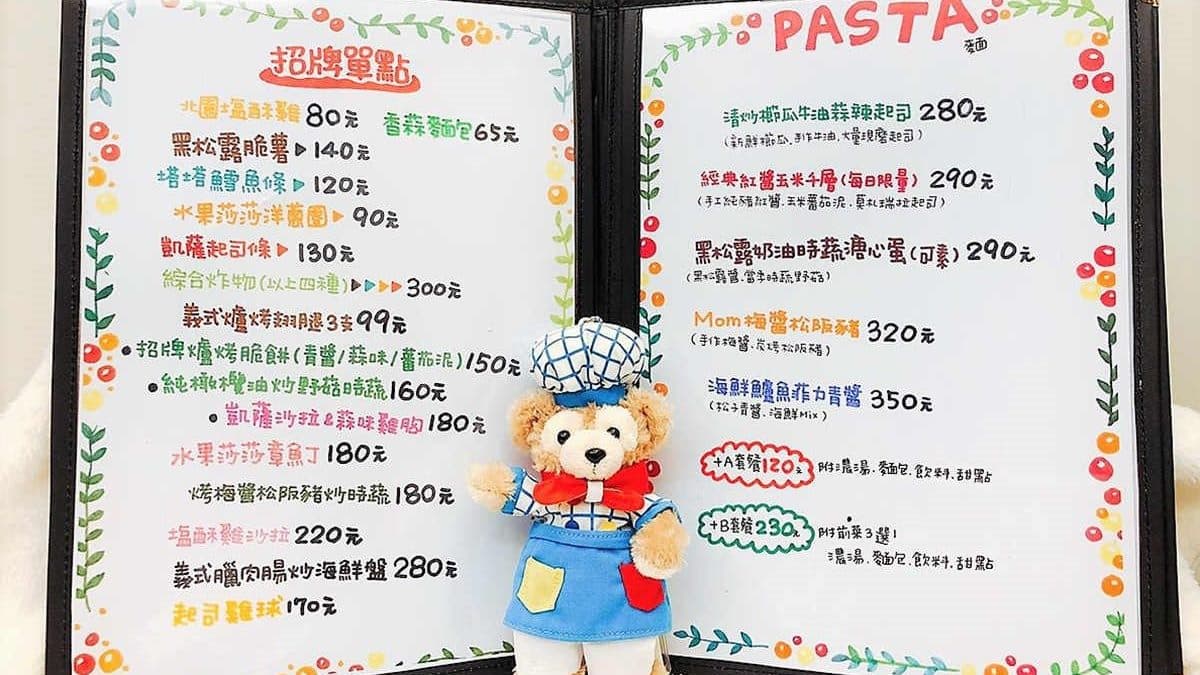 招牌單點
北園塩酥雞 80元
香蒜麵包 65元
黑松露脆薯▶140元
塔塔鱈魚條▶120元
水果莎莎洋蔥圈▶90元
凱薩起司條▶130元
綜合炸物(以上四種)▶▶▶▶300元
義式爐烤翅腿3支99元
•招牌爐烤脆餅(青醬/蒜味/蕃茄泥)150元
•純橄欖油炒野菇時蔬160元
•凱薩沙拉&蒜味雞胸180元
水果莎莎章魚丁180元
烤梅醬松阪豬炒時蔬180元
塩酥雞沙拉220元
義式臘肉腸炒海鮮盤280元
起司雞球170元
PASTA
麵
清炒櫛瓜牛油蒜辣起司 280元
(新鮮櫛瓜.手作牛油.大量現磨起司)
經典紅醬玉米千層(每日限量) 290元
(手工純豬紅醬.玉米蕃茄泥.莫札瑞拉起司)
黑松露奶油時蔬溏心蛋(可素)290元
(黑松露醬.當季時蔬野菇)
Mom梅醬松阪豬 320元
(手作梅醬.炭烤松阪豬)
海鮮鱸魚菲力青醬 350元
(松子青醬.海鮮Mix)
+A套餐120元 附濃湯.麵包.飲料.甜點
+B套餐230元 附前菜3選1
濃湯.麵包.飲料.甜點